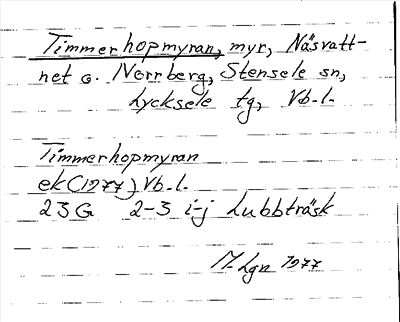 Timmerhopmyran, myr, Näsvatt-
net o. Norrberg, Stensele sn,
Lycksele tg, Vb.l.
Timmerhopmyran
ek(1977) Vb.l.
23G 2-3 i-j Lubbträsk
M-Lgn 1977